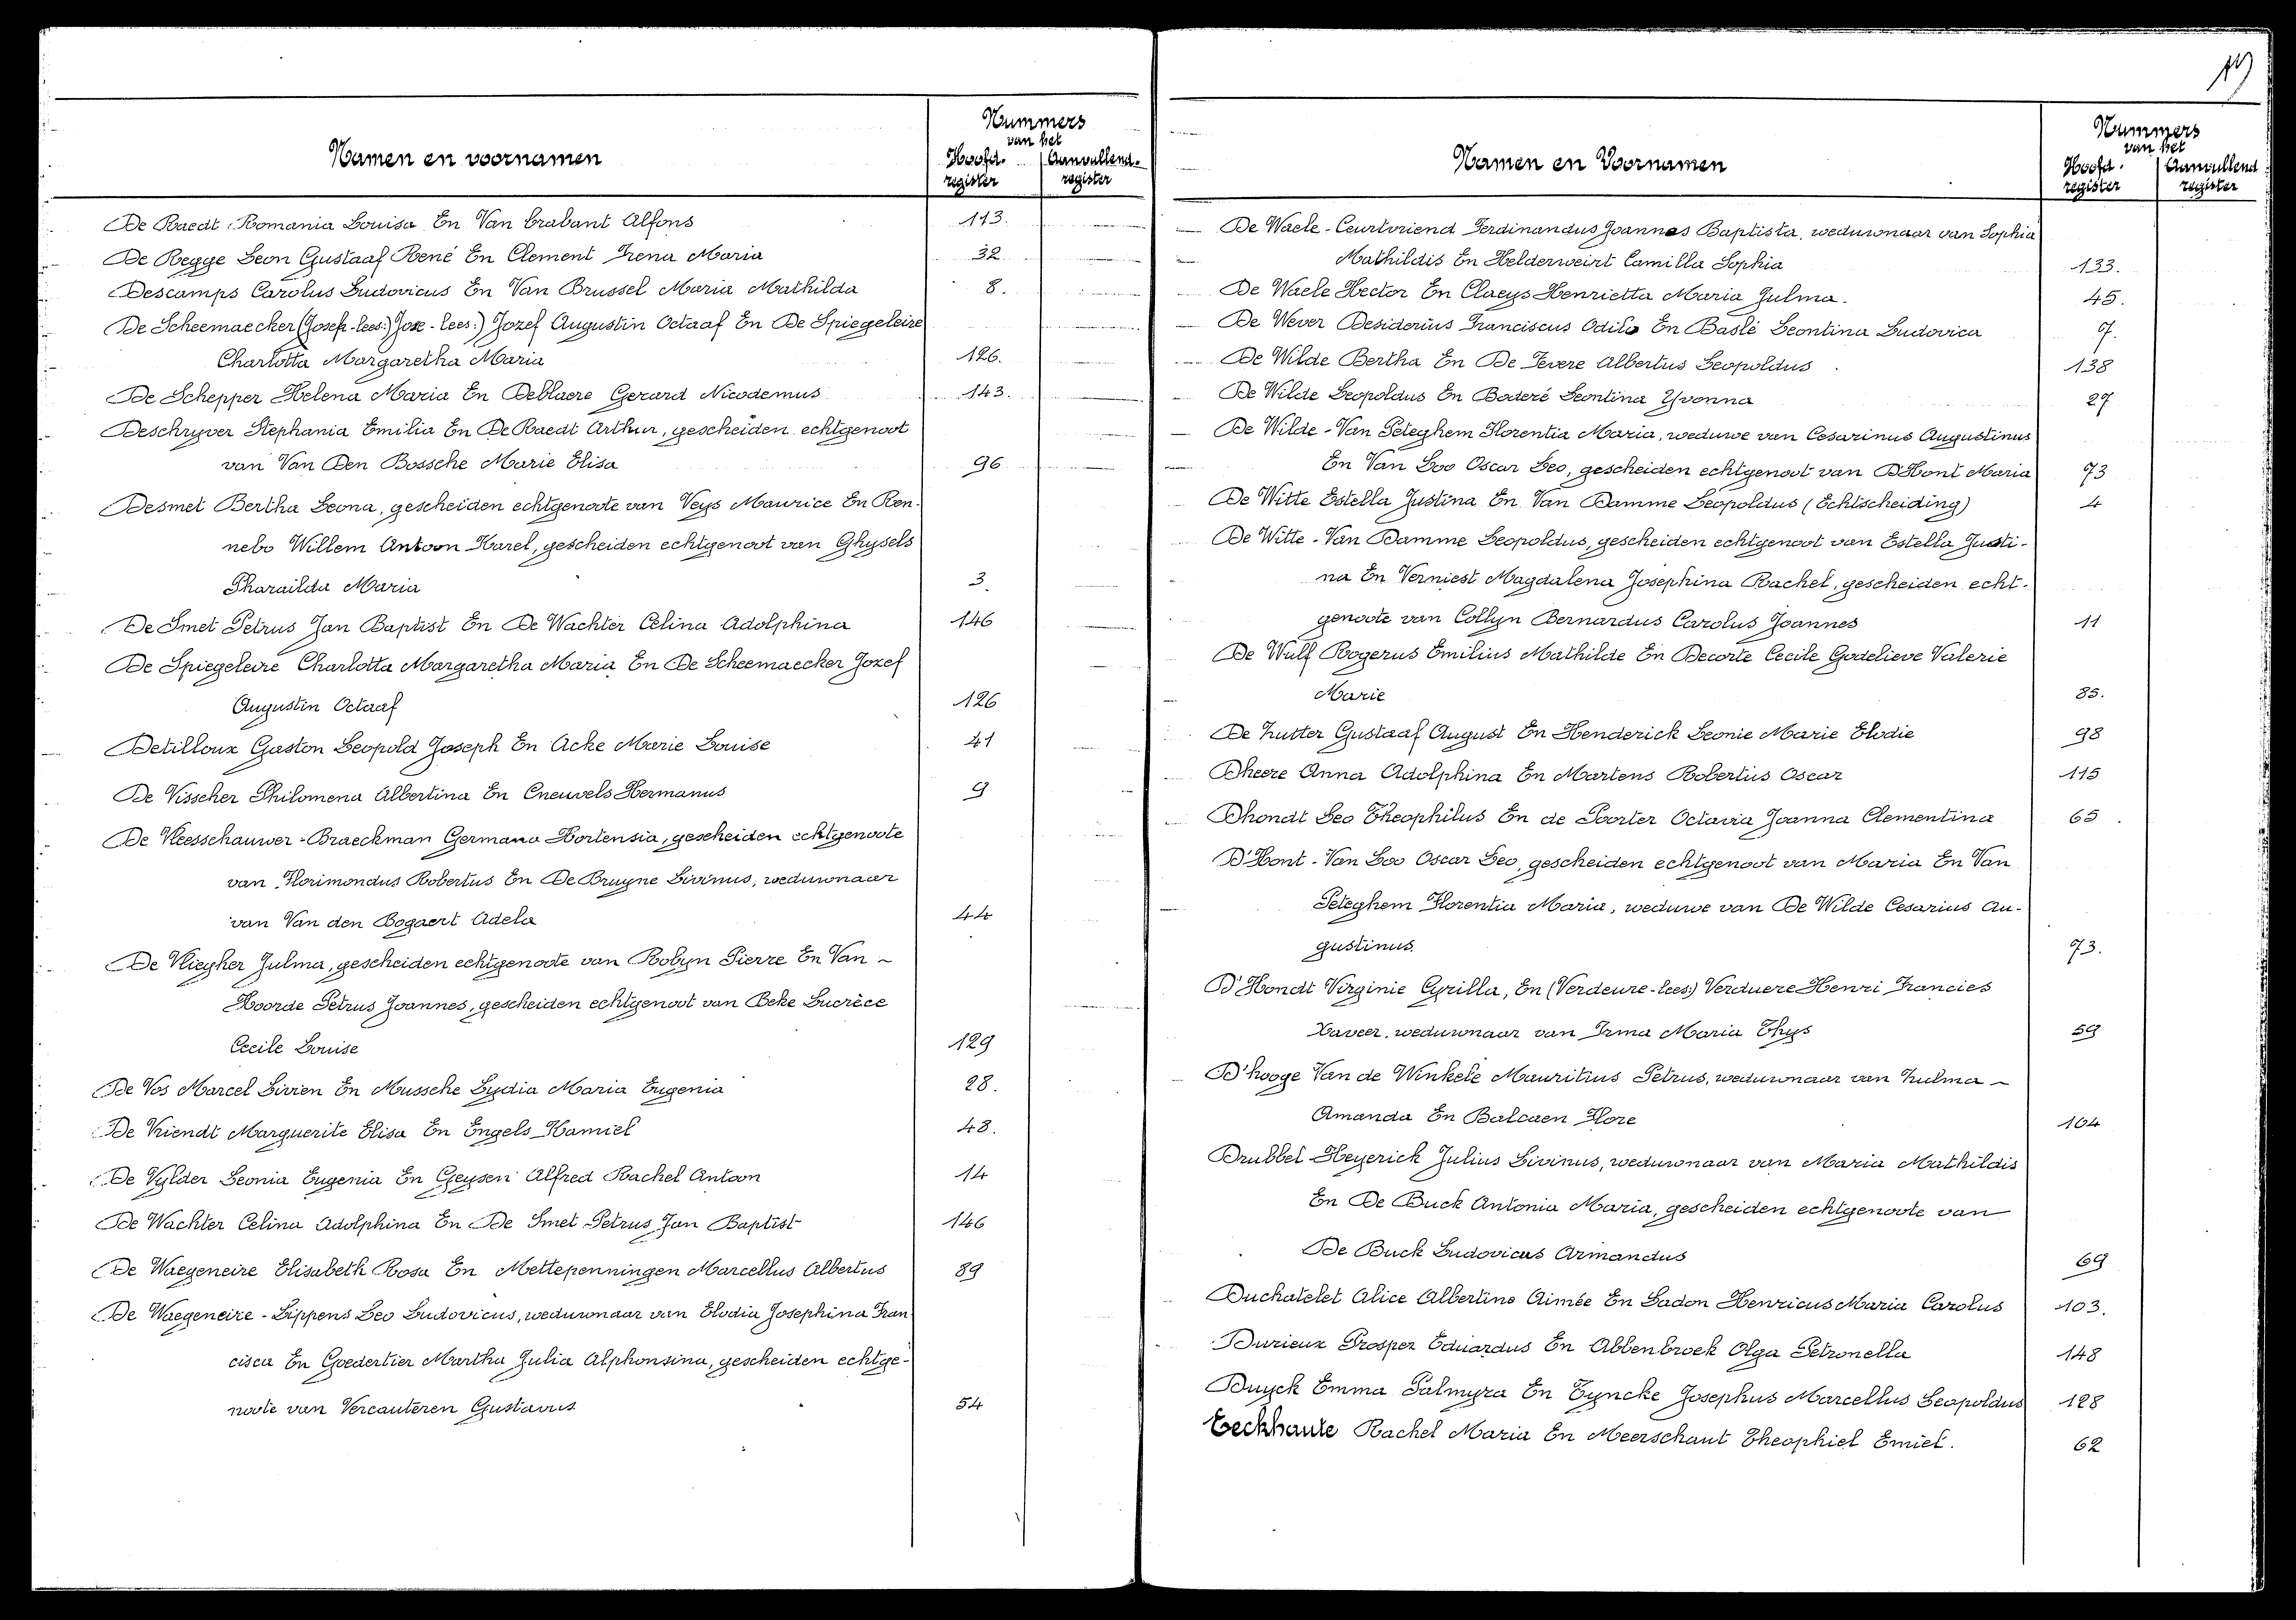 Namen en voornamen
Nummers
van het
Hoofd-
register
Aanvullend-
register
De Raedt Romania Louisa En Van brabant Alfons 113.
De Regge Leon Gustaaf René En Clement Irena Maria 32
Descamps Carolus Ludovicus En Van Brussel Maria Mathilda 8.
De Scheemaecker (Josef-lees:) Joze-lees:) Jozef Augustin Octaaf En De Spiegeleire
Charlotta Margaretha Maria 126.
De Schepper Helena Maria En Deblaere Gerard Nicodemus 143.
Deschryver Stephania Emilia En De Raedt Arthur, gescheiden echtgenoot
van Van Den Bossche Marie Elisa 96
Desmet Bertha Leona, gescheiden echtgenoote van Veys Maurice En Ren-
nebo Willem Antoon Karel, gescheiden echtgenoot van Ghysels
Pharailda Maria 3.
De Smet Petrus Jan Baptist En De Wachter Celina Adolphina 146
De Spiegeleire Charlotta Margaretha Maria En De Scheemaecker Jozef
Augustin Octaaf 126
Detilloux Gaston Leopold Joseph En Acke Marie Louise 41
De Visscher Philomena Albertina En Cneuvels Hermanus 9
De Vleesschauwer-Braeckman Germana Hortensia, gescheiden echtgenoote
van Florimondus Robertus En De Bruyne Livinus, weduwnaar
van Van den Bogaert Adela 44
De Vliegher Julma, gescheiden echtgenoote van Robyn Pierre En Van -
Hoorde Petrus Joannes, gescheiden echtgenoot van Beke Lucrèce
Cecile Louise 129
De Vos Marcel Livien En Mussche Lydia Maria Eugenia 28.
De Vriendt Marguerite Elisa En Engels Kamiel 43.
De Vylder Leonia Eugenia En Geysen Alfred Rachel Antoon 14
De Wachter Celina Adolphina En De Smet Petrus Jan Baptist 146
De Waegeneire Elisabeth Rosa En Mettepenningen Marcellus Albertus 89
De Waegeneire-Lippens Leo Ludovicus, weduwnaar van Elodia Josephina Fran
cisca En Goedertier Martha Julia Alphonsina, gescheiden echtge-
noote van Vercauteren Gustavus 54
Namen en Voornamen
Nummers
van het
Hoofd-
register
Aanvullend
register
De Waele-Ceurtvriend Ferdinandus Joannes Baptista, weduwnaar van Sophia
Mathildis En Helderweirt Camilla Sophia 133.
De Waele Hector En Claeys Henrietta Maria Julma. 45.
De Wever Desiderius Franciscus Odilo En Baslé Leontina Ludovica 7.
De Wilde Bertha En De Tevere Albertus Leopoldus 138
De Wilde Leopoldus En Boderé Leontina Yvonna 27
De Wilde-Van Peteghem Florentia Maria, weduwe van Cesarinus Augustinus
En Van Loo Oscar Leo, gescheiden echtgenoot van D'Hont Maria 73
De Witte Estella Justina En Van Damme Leopoldus (Echtscheiding) 4
De Witte-Van Damme Leopoldus, gescheiden echtgenoot van Estella Justi-
na En Verniest Magdalena Josephina Rachel, gescheiden echt-
genoote van Collyn Bernardus Carolus Joannes 11
De Wulf Rogerus Emilius Mathilde En Decorte Cecile Godelieve Valerie
Marie 85.
De Zutter Gustaaf August En Henderick Leonie Marie Elodie 98
Dheere Anna Adolphina En Martens Robertus Oscar 115
Dhondt Leo Theophilus En de Poorter Octavia Joanna Clementina 65
D'Hont-Van Loo Oscar Leo, gescheiden echtgenoot van Maria En Van
Peteghem Florentia Maria, weduwe van De Wilde Cesarius Au-
gustinus 73.
D'Hondt Virginie Cyrilla, En (Verdeure-lees:) Verduere Henri Francies
Xaveer, weduwnaar van Irma Maria Thys 59
D'hooge Van de Winkele Mauritius Petrus, weduwnaar van Zulma -
Amanda En Balcaen Flore 104
Drubbel-Heyerick Julius Livinus, weduwnaar van Maria Mathildis
En De Buck Antonia Maria, gescheiden echtgenoote van
De Buck Ludovicus Armandus 69
Duchatelet Alice Albertine Aimée En Ladon Henricus Maria Carolus 103.
Durieux Prosper Eduardus En Abbenbroek Olga Petronella 148
Duyck Emma Palmyra En Tyncke Josephus Marcellus Leopoldus 128
Eeckhaute Rachel Maria En Meerschaut Theophiel Emiel. 62